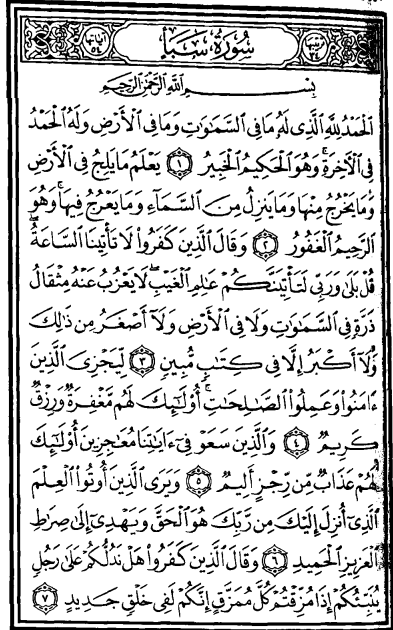 ترتيبها ٣٤ سُورَةُ سَبَإٍ آياتها ٥٤
بِسْمِ ٱللَّهِ ٱلرَّحْمَٰنِ ٱلرَّحِيمِ
ٱلْحَمْدُ لِلَّهِ ٱلَّذِى لَهُۥ مَا فِى ٱلسَّمَٰوَٰتِ وَمَا فِى ٱلْأَرْضِ وَلَهُ ٱلْحَمْدُ
فِى ٱلْءَاخِرَةِ ۚ وَهُوَ ٱلْحَكِيمُ ٱلْخَبِيرُ ١ يَعْلَمُ مَا يَلِجُ فِى ٱلْأَرْضِ
وَمَا يَخْرُجُ مِنْهَا وَمَا يَنزِلُ مِنَ ٱلسَّمَآءِ وَمَا يَعْرُجُ فِيهَا ۚ وَهُوَ
ٱلرَّحِيمُ ٱلْغَفُورُ ٢ وَقَالَ ٱلَّذِينَ كَفَرُوا۟ لَا تَأْتِينَا ٱلسَّاعَةُ ۖ
قُلْ بَلَىٰ وَرَبِّى لَتَأْتِيَنَّكُمْ عَٰلِمِ ٱلْغَيْبِ ۖ لَا يَعْزُبُ عَنْهُ مِثْقَالُ
ذَرَّةٍ فِى ٱلسَّمَٰوَٰتِ وَلَا فِى ٱلْأَرْضِ وَلَآ أَصْغَرُ مِن ذَٰلِكَ
وَلَآ أَكْبَرُ إِلَّا فِى كِتَٰبٍ مُّبِينٍ ٣ لِّيَجْزِىَ ٱلَّذِينَ
ءَامَنُوا۟ وَعَمِلُوا۟ ٱلصَّٰلِحَٰتِ ۚ أُو۟لَٰٓئِكَ لَهُم مَّغْفِرَةٌ وَرِزْقٌ
كَرِيمٌ ٤ وَٱلَّذِينَ سَعَوْ فِىٓ ءَايَٰتِنَا مُعَٰجِزِينَ أُو۟لَٰٓئِكَ
لَهُمْ عَذَابٌ مِّن رِّجْزٍ أَلِيمٌ ٥ وَيَرَى ٱلَّذِينَ أُوتُوا۟ ٱلْعِلْمَ
ٱلَّذِىٓ أُنزِلَ إِلَيْكَ مِن رَّبِّكَ هُوَ ٱلْحَقَّ وَيَهْدِىٓ إِلَىٰ صِرَٰطِ
ٱلْعَزِيزِ ٱلْحَمِيدِ ٦ وَقَالَ ٱلَّذِينَ كَفَرُوا۟ هَلْ نَدُلُّكُمْ عَلَىٰ رَجُلٍ
يُنَبِّئُكُمْ إِذَا مُزِّقْتُمْ كُلَّ مُمَزَّقٍ إِنَّكُمْ لَفِى خَلْقٍ جَدِيدٍ ٧